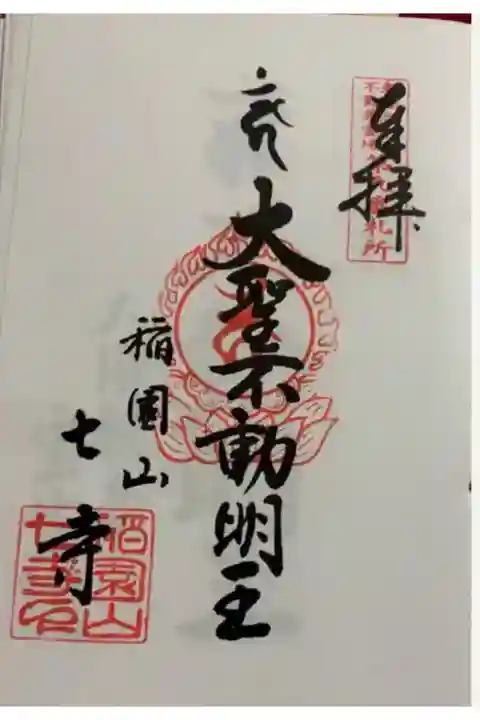 奉拝
札所
大聖不動明王
稲園山
七寺
稲園山
七寺